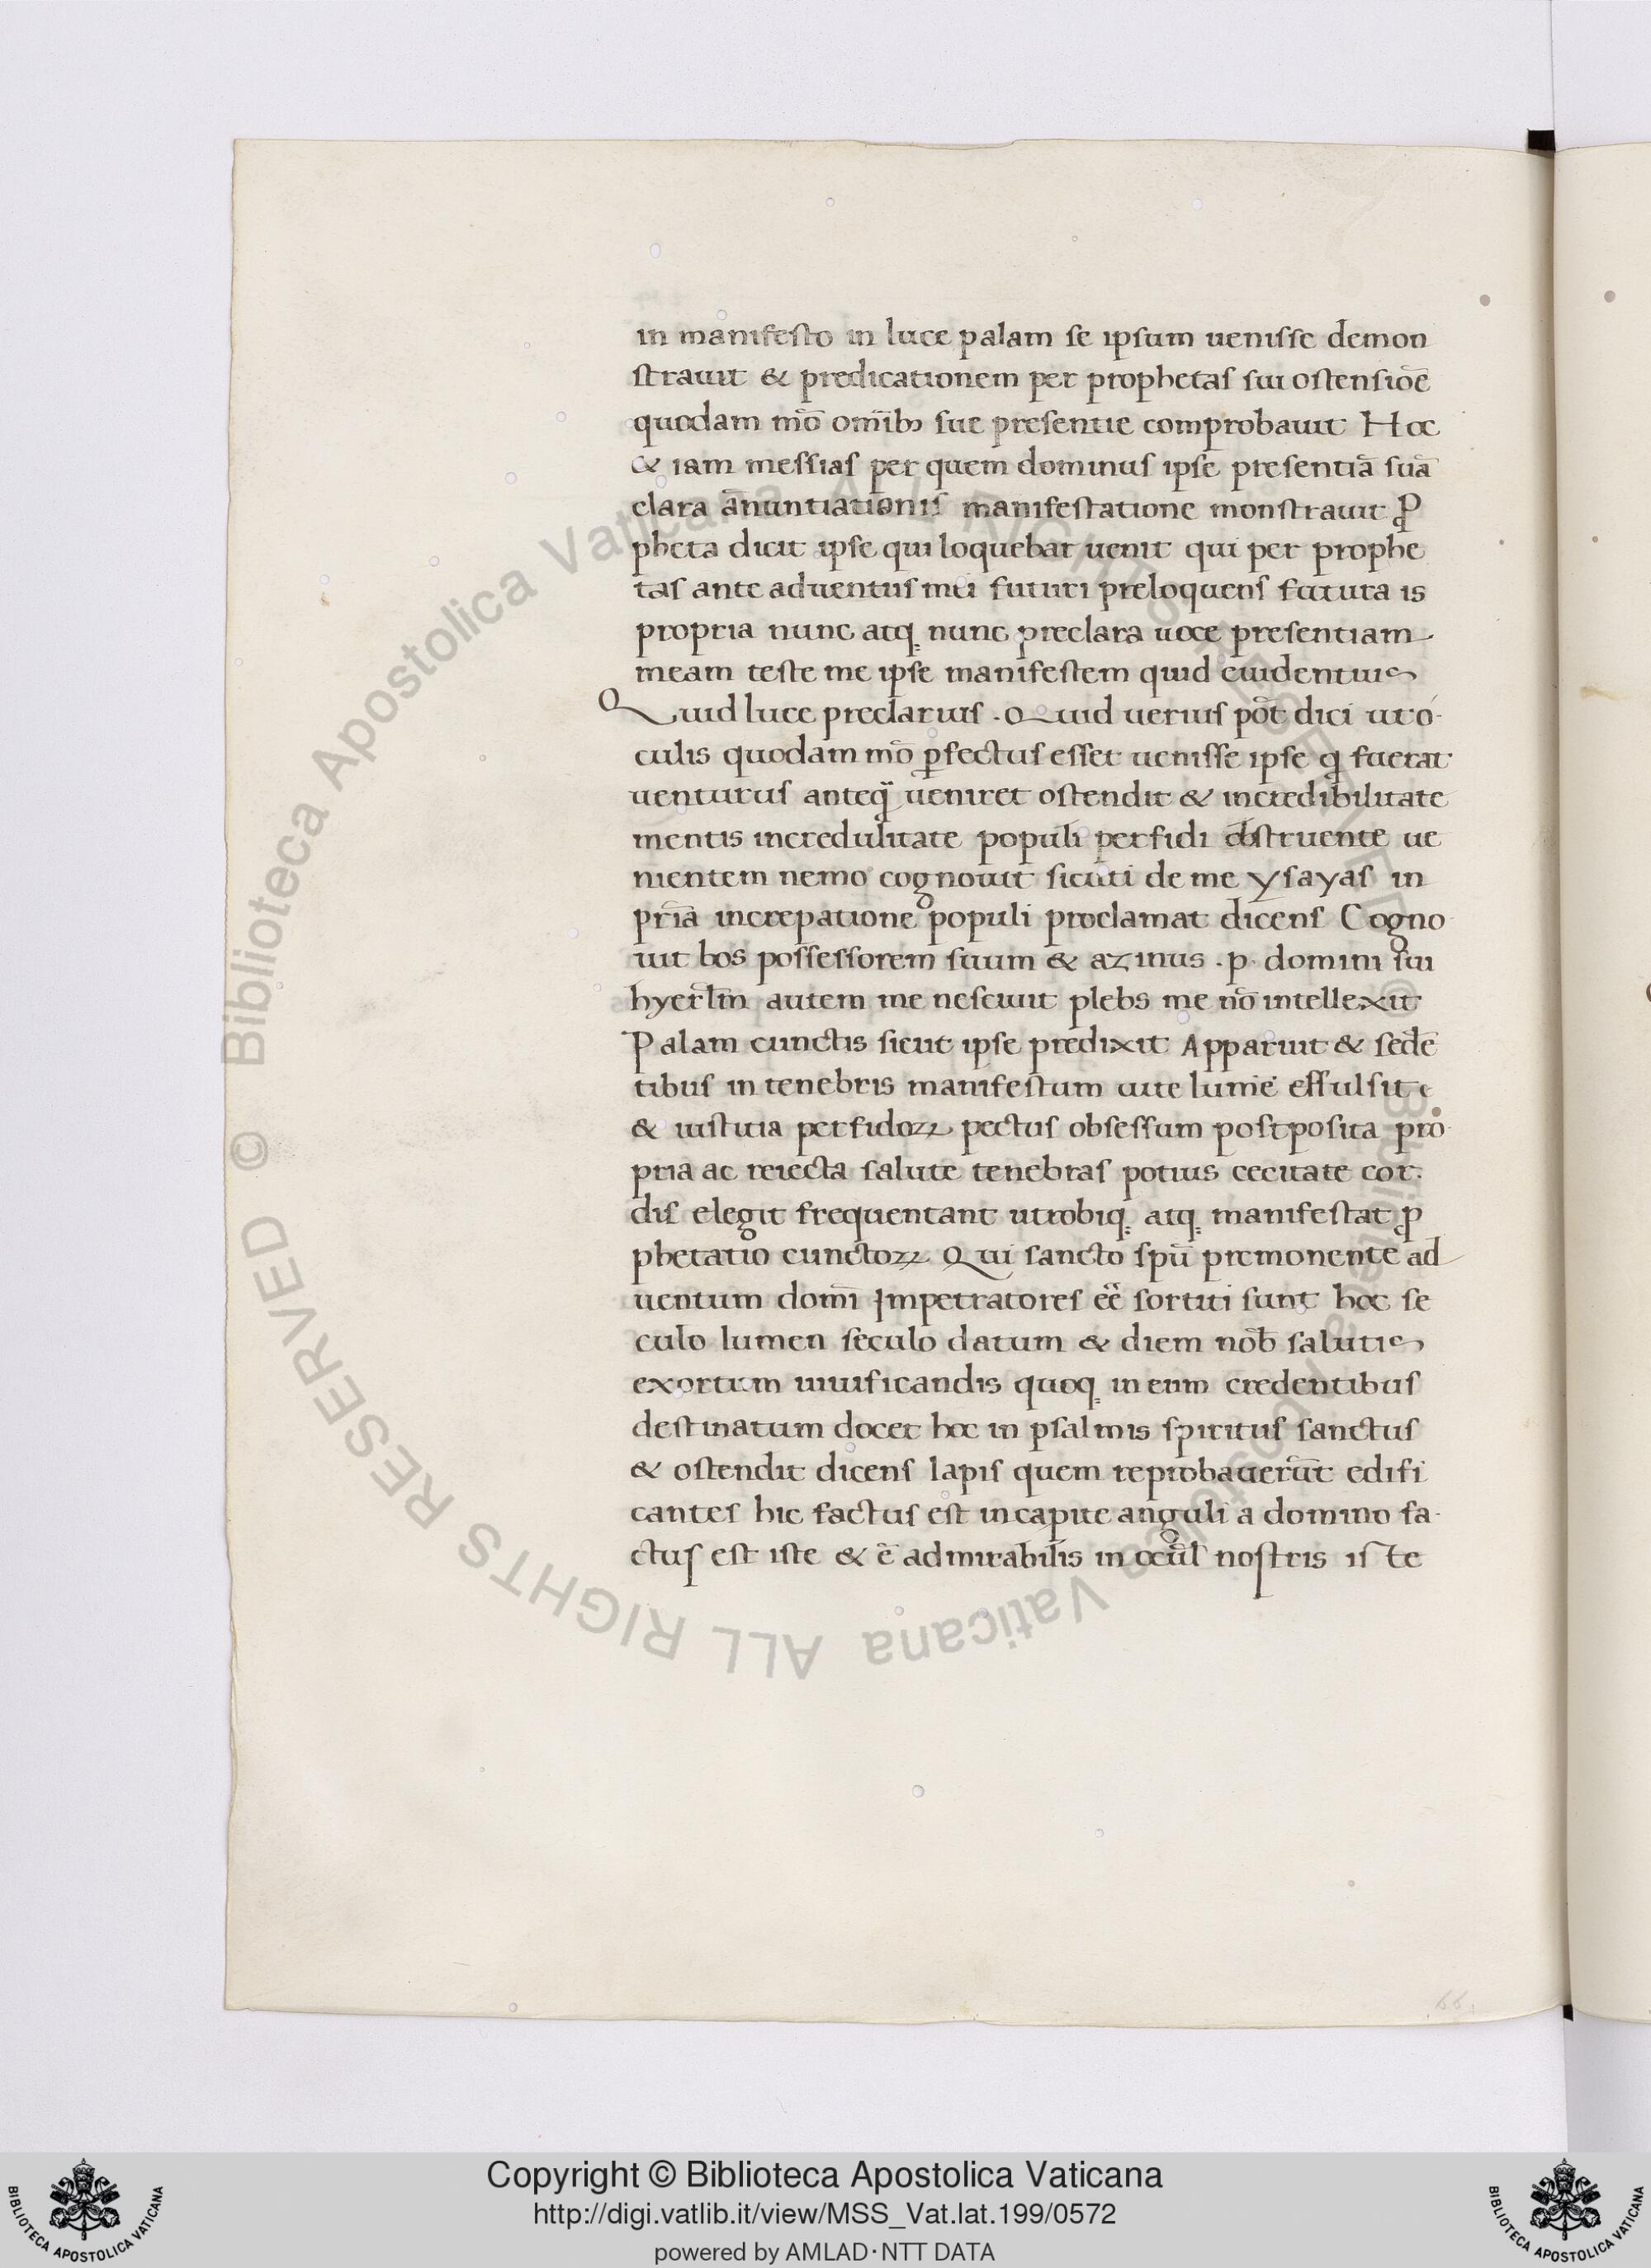 in manifeſto in luce palam ſe ipſum ueniſſe demon
ſtrauit & predicationem per prophetaſ ſui oſtenſioē
quodam mō omībꝫ ſue preſentie comprobauit Hoc
& iam meſſiaſ per quem dominuſ ipſe preſentiā ſuā
clara ānuntiationiſ manifeſtatione monſtrauit ꝓ
pheta dicit ipſe qui loquebar uenit qui per prophe
taſ ante aduentuſ mei futuri preloquenſ futura is
propria nunc atqꝫ nunc preclara uoce preſentiam
meam teſte me ipſe manifeſtem quid euidentius
Quid luce preclariuſ . Quid ueriuſ pōt dici ut o
culis quodam mō ꝑfectuſ eſſet ueniſſe ipſe q fuerat
uenturuſ anteq̄ ueniret oſtendit & incredibilitate
mentis incredulitate populi perfidi obſtruente ue
nientem nemo cognouit ſicuti de me yſayaſ in
pria increpatione populi proclamat dicenſ Cogno
uit bos poſſeſſorem ſuum & azinus .p. domini ſui
hyerl̄m autem me neſciuit plebs me nō intellexit
Palam cunctis ſicut ipſe predixit Apparuit & ſedē
tibuſ in tenebris manifeſtum uite lumē effulſit
& iuſtitia perfidoꝝ pectuſ obſeſſum poſtpoſita pro
pria ac reiecta ſalute tenebraſ potius cecitate cor.
diſ elegit frequentant utrobiqꝫ atqꝫ manifeſtat ꝓ
phetatio cunctoꝝ Qui ſancto ſpū premonente ad
uentum domī Impetratoreſ eē ſortiti ſunt hoc ſe
culo lumen ſeculo datum & diem nōb ſalutis
exortum uiuificandis quoqꝫ in eum credentibuſ
deſtinatum docet hoc in pſalmis ſpirituſ ſanctuſ
& oſtendit dicenſ lapiſ quem reprobauerūt edifi
canteſ hic factuſ eſt in capite anguli a domino fa
ctuſ eſt iſte & ē admirabilis in ocul̄ noſtris iſte
66.
© Biblioteca Apostolica Vaticana ALL RIGHTS RESERVED © Biblioteca Apostolica Vaticana ALL RIGHTS RESERVED
Copyright © Biblioteca Apostolica Vaticana
http://digi.vatlib.it/view/MSS_Vat.lat.199/0572
powered by AMLAD·NTT DATA
BIBLIOTECA APOSTOLICA VATICANA
BIBLIOTECA APOSTOLICA VATICANA